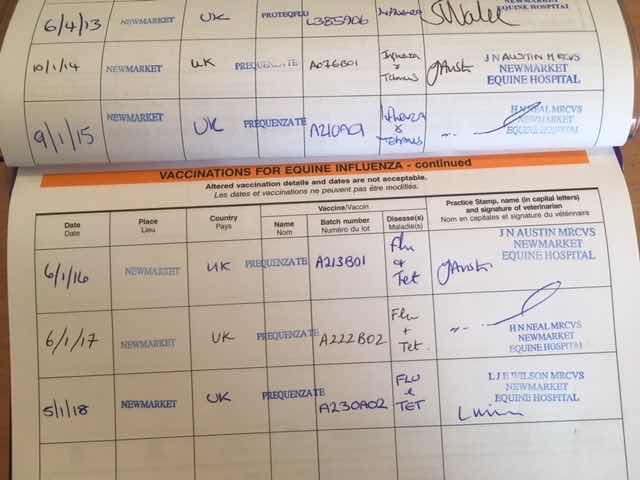 NEWMARKET
6/4/13 NEWMARKET UK PROTEQFLU L385906 Influenza EQUINE HOSPITAL
10/1/14 NEWMARKET UK PREQUENZA TE A076B01 Influenza & Tetanus JAusti J N AUSTIN MRCVS
NEWMARKET
EQUINE HOSPITAL
9/1/15 NEWMARKET UK PREQUENZA TE A210A01 Influenza & Tetanus H N NEAL MRCVS
NEWMARKET
EQUINE HOSPITAL
VACCINATIONS FOR EQUINE INFLUENZA - continued
Altered vaccination details and dates are not acceptable.
Les dates et vaccinations ne peuvent pas être modifiés.
Date Place Country Vaccine/Vaccin Disease(s) Practice Stamp, name (in capital letters)
and signature of veterinarian
Date Lieu Pays Name Batch number Maladie(s) Nom en capitales et signature du vétérinaire
Nom Numéro du lot
6/1/16 NEWMARKET UK PREQUENZA TE A213B01 Flu & Tet JAusti J N AUSTIN MRCVS
NEWMARKET
EQUINE HOSPITAL
6/1/17 NEWMARKET UK PREQUENZA TE A222B02 Flu + Tet. H N NEAL MRCVS
NEWMARKET
EQUINE HOSPITAL
5/1/18 NEWMARKET UK PREQUENZA TE A230A02 FLU & TET L J E WILSON MRCVS
NEWMARKET
EQUINE HOSPITAL